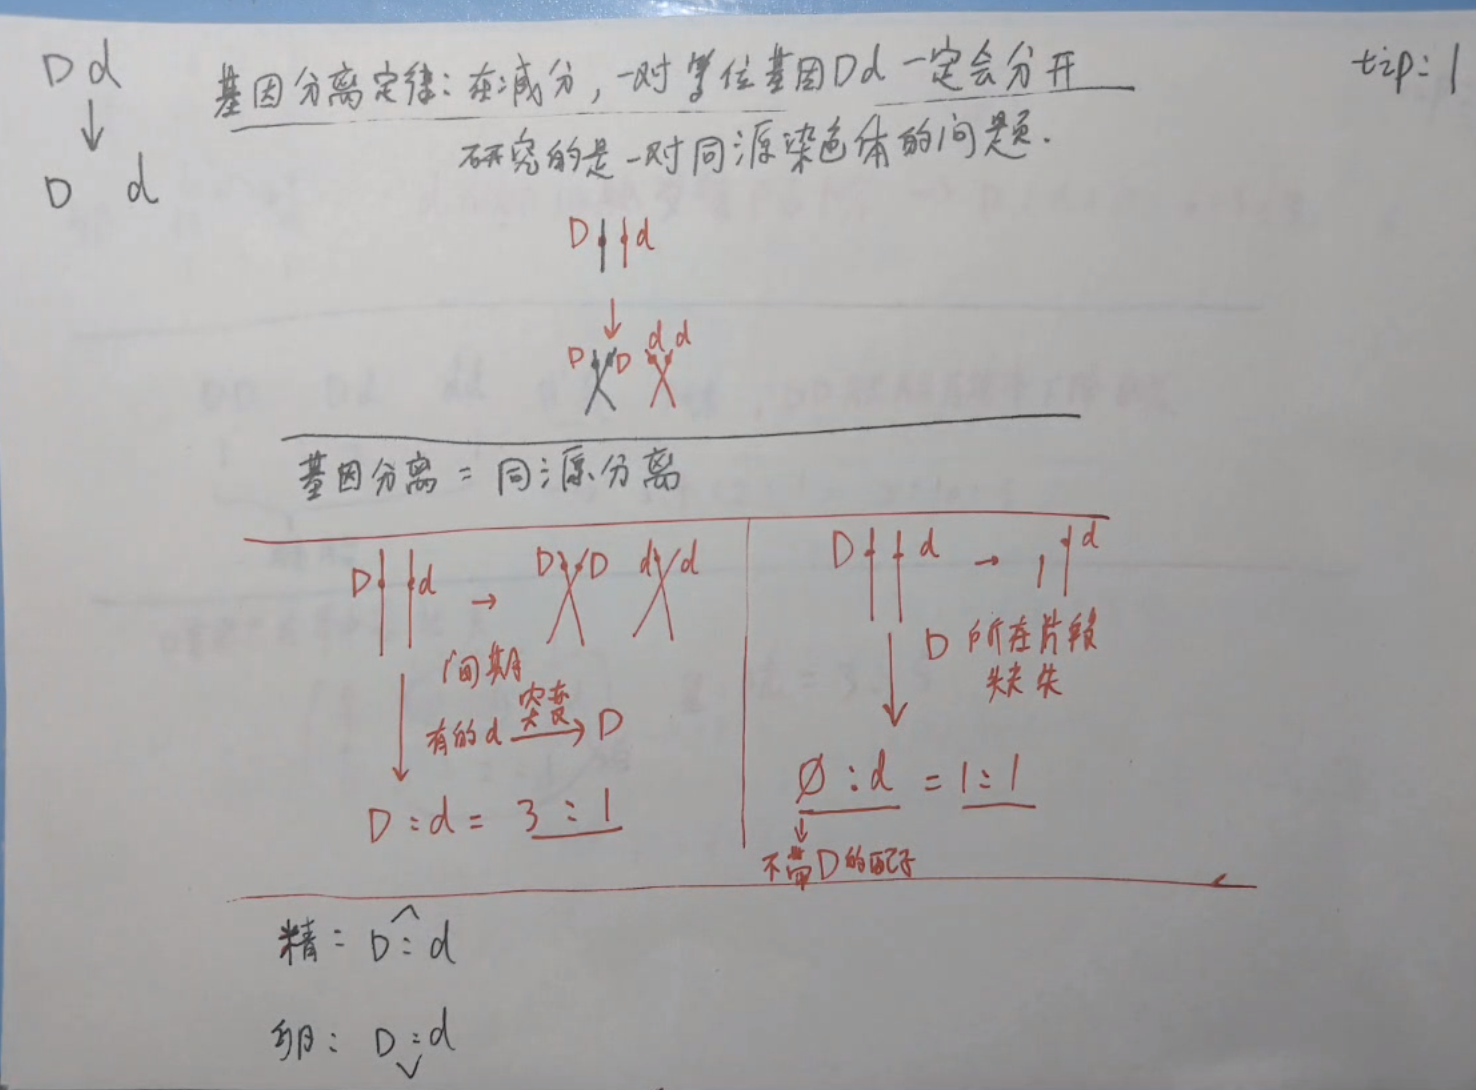 Dd
D d
基因分离定律：在减分，一对等位基因Dd一定会分开
tip: 1
研究的是一对同源染色体的问题.
D d
D D d d
基因分离 = 同源分离
D d → D D d d
间期
有的d 突变→ D
D : d = 3 : 1
D d → d
D 所在片段
缺失
Ø : d = 1 : 1
不带D的配子
精: D : d
卵: D : d